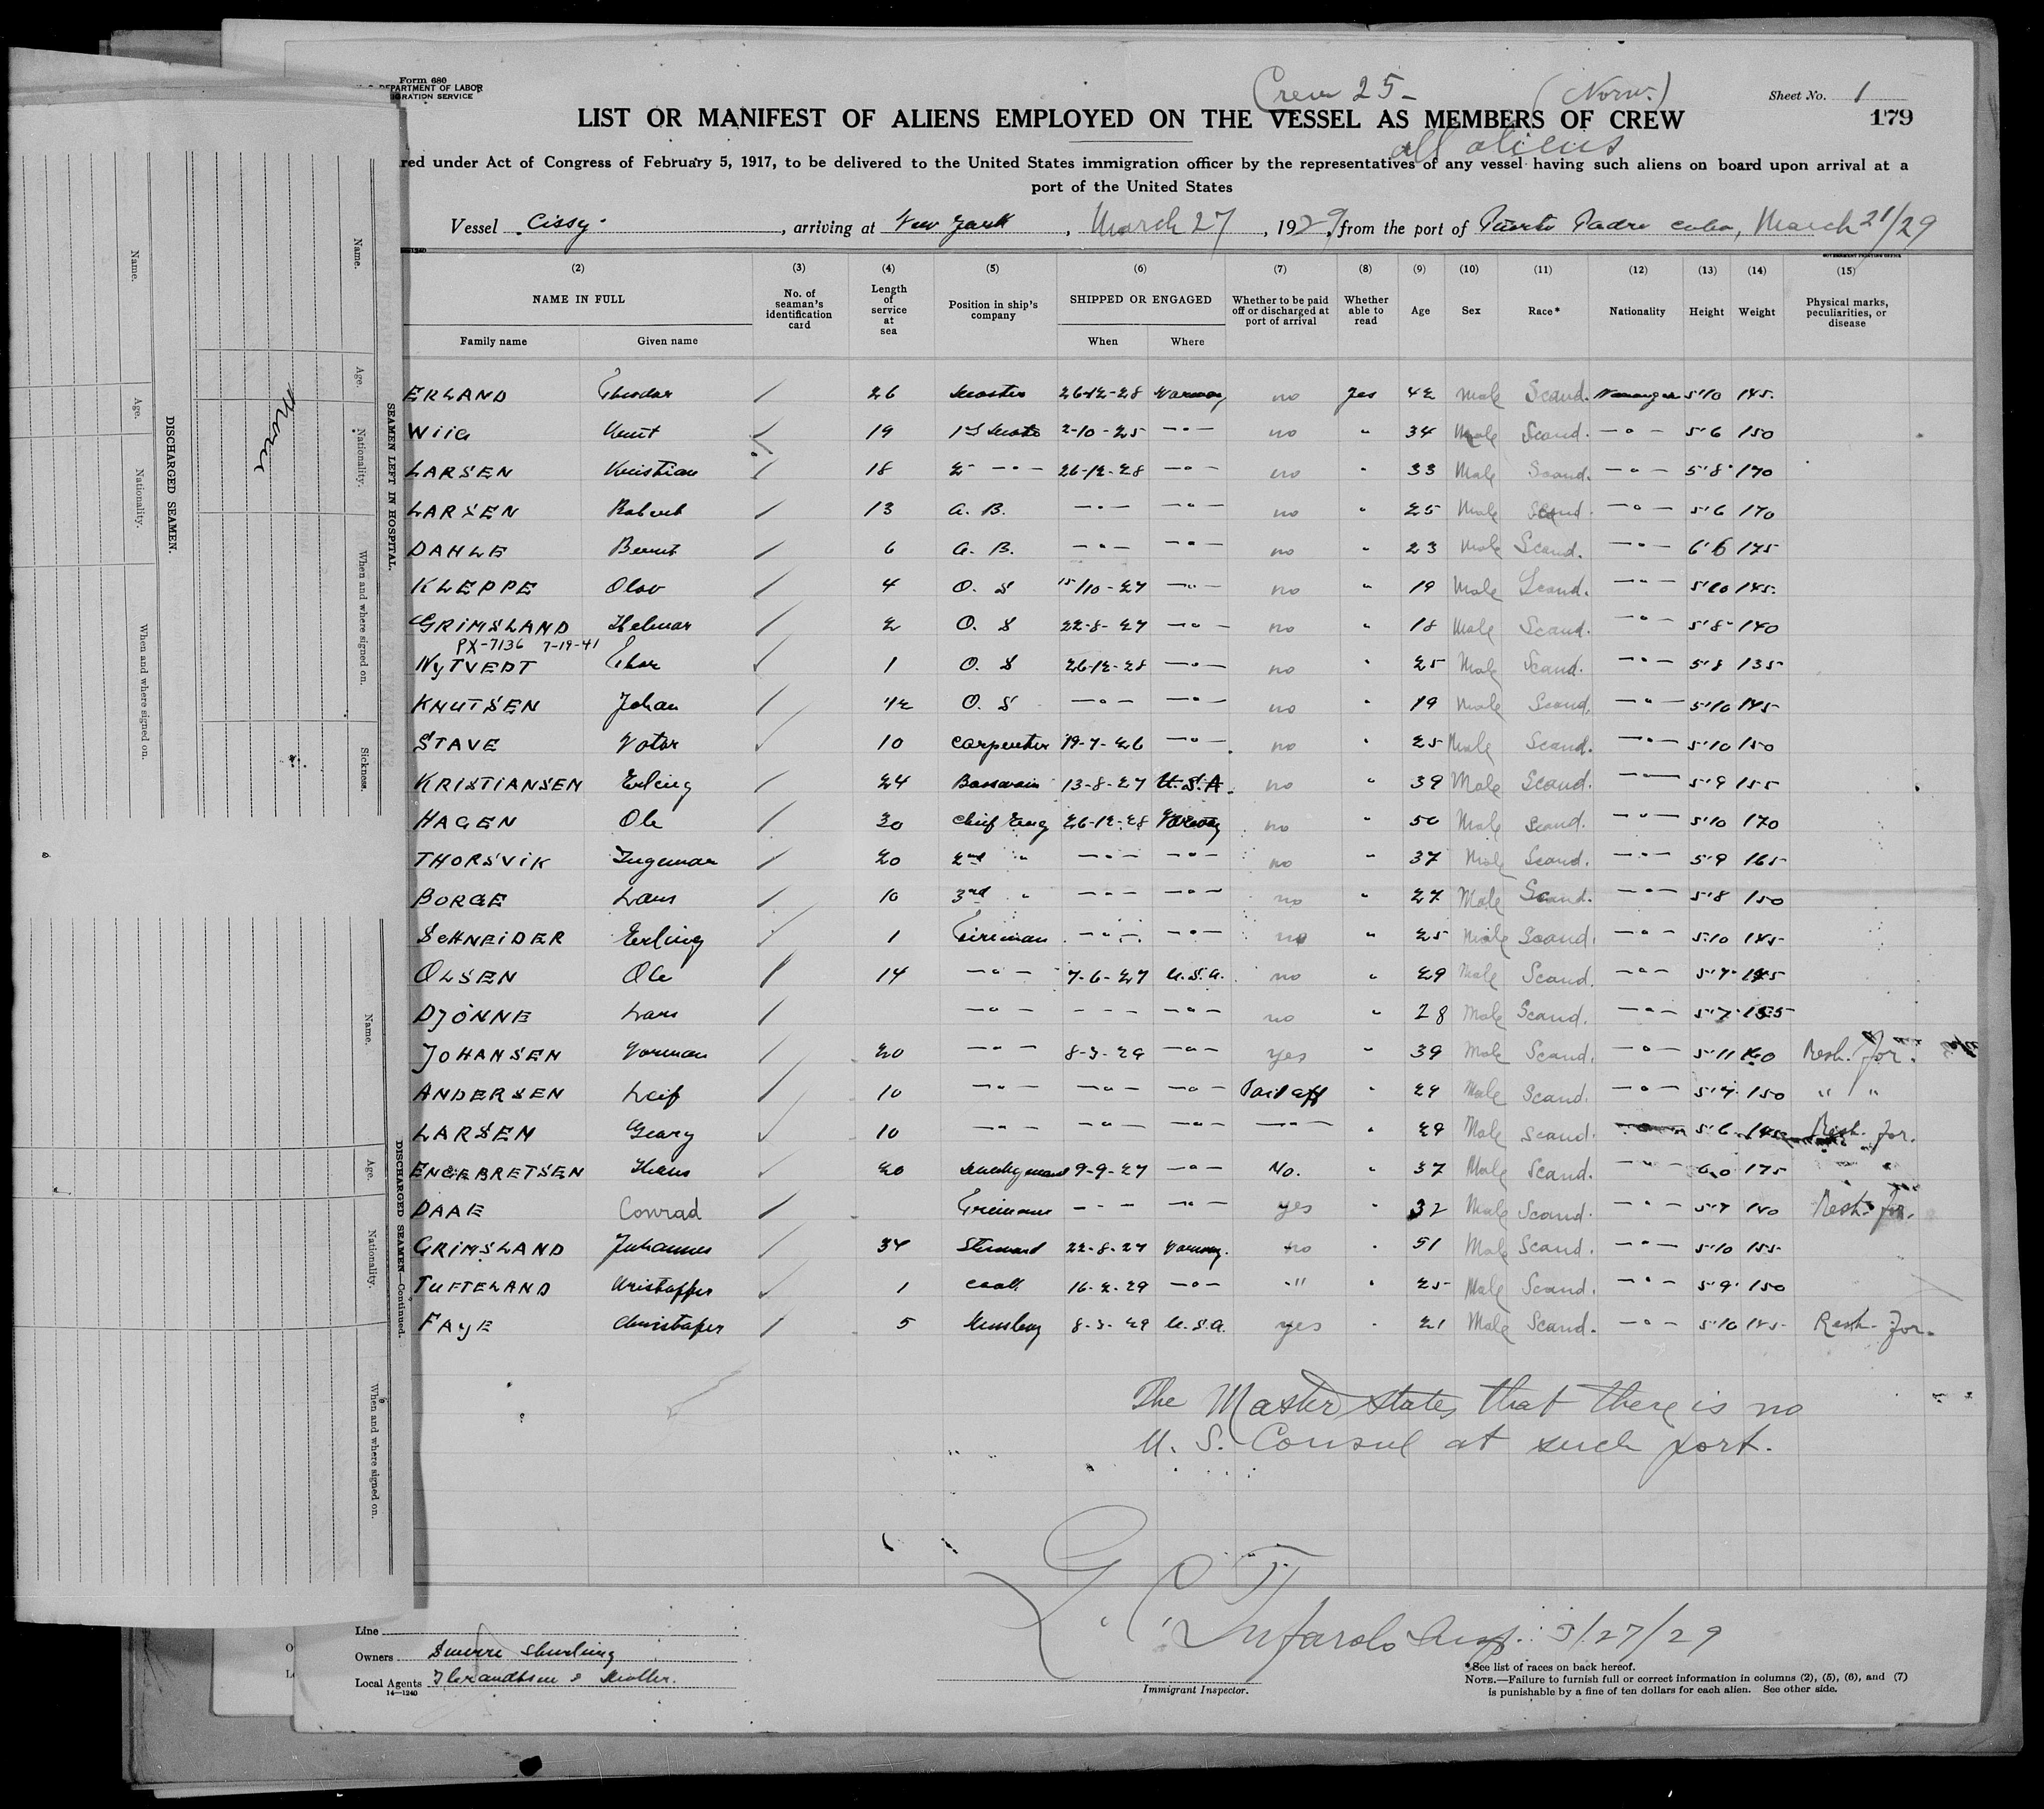 Form 680
DEPARTMENT OF LABOR
IGRATION SERVICE
Crew 25 - (Norw.)
Sheet No. 1
LIST OR MANIFEST OF ALIENS EMPLOYED ON THE VESSEL AS MEMBERS OF CREW
179
all aliens
red under Act of Congress of February 5, 1917, to be delivered to the United States immigration officer by the representatives of any vessel having such aliens on board upon arrival at a
port of the United States
Vessel Cissy, arriving at New York, March 27, 1929, from the port of Puerto Padre Cuba, March 21/29
GOVERNMENT PRINTING OFFICE
(2) (3) (4) (5) (6) (7) (8) (9) (10) (11) (12) (13) (14) (15)
NAME IN FULL No. of seaman's identification card Length of service at sea Position in ship's company SHIPPED OR ENGAGED Whether to be paid off or discharged at port of arrival Whether able to read Age Sex Race* Nationality Height Weight Physical marks, peculiarities, or disease
Family name Given name When Where
ERLAND Theodor / 26 Master 26-12-28 Norway no yes 42 Male Scand. Norwegian 5'10 145
WIIG Knut / 19 1st Mate 2-10-25 —"— no " 34 Male Scand. —"— 5'6 150
LARSEN Kristian / 18 2 —"— 26-12-28 —"— no " 33 Male Scand. —"— 5'8" 170
LARSEN Robert / 13 A. B. —"— —"— no " 25 Male Scand —"— 5'6 170
DAHLE Bernt / 6 A. B. —"— —"— no " 23 Male Scand. —"— 6'6 175
KLEPPE Olav / 4 O. S 15/10-27 —"— no " 19 Male Scand. —"— 5'10 145
GRIMSLAND Helmar / 2 O. S 22-8-27 —"— no " 18 Male Scand. —"— 5'8" 140
PX-7136 7-19-41
NYTVEDT Thor / 1 O. S 26-12-28 —"— no " 25 Male Scand. —"— 5'8 135
KNUTSEN Johan / 1/2 O. S —"— —"— no " 19 Male Scand. —"— 5'10 145
STAVE / 10 Carpenter 19-7-26 —"— no " 25 Male Scand. —"— 5'10 150
KRISTIANSEN Erling / 24 Bosswain 13-8-27 U.S.A. no " 39 Male Scand. —"— 5'9 155
HAGEN Ole / 30 Chief Eng 26-12-28 Norway no " 50 Male Scand. —"— 5'10 170
THORSVIK Ingemar / 20 2nd " —"— —"— no " 37 Male Scand. —"— 5'9 165
BORGE Lars / 10 3rd " —"— —"— no " 27 Male Scand. —"— 5'8 150
SCHNEIDER Erling / 1 Fireman —"— —"— no " 25 Male Scand. —"— 5'10 145
OLSEN Ole / 14 —"— 7-6-27 U.S.A. no " 29 Male Scand. —"— 5'7"
DJÖNNE Lars / —"— - - - —"— no " 28 Male Scand. —"— 5'7 155
JOHANSEN Norman / 20 —"— 8-3-29 —"— yes " 39 Male Scand. —"— 5'11 160 Resh. For.
ANDERSEN Leif / 10 —"— —"— —"— Paid off " 29 Male Scand. —"— 5'7 150 " "
LARSEN Georg / 10 —"— —"— —"— —"— " 29 Male Scand. 5'6 Resh. For.
ENGEBRETSEN Hans / 20 9-9-27 —"— No. " 37 Male Scand. —"— 6.0 175
DAAE Conrad / Fireman - - - —"— yes " 32 Male Scand. —"— 5'7 Resh. For.
GRIMSLAND Johannes / 34 Steward 22-8-27 Norway. no " 51 Male Scand. —"— 5'10 155
TUFTELAND Kristoffer / 1 Cook 16-2-29 —"— " " 25 Male Scand. —"— 5'9 150
FAYE Christofer / 5 Messboy 8-3-29 U.S.A. yes " 21 Male Scand. —"— 5'10 Resh. For.
The Master states that there is no
U. S. Consul at such port.
3/27/29
Immigrant Inspector.
Line
Owners
Local Agents
14—1240
*See list of races on back hereof.
NOTE.—Failure to furnish full or correct information in columns (2), (5), (6), and (7)
is punishable by a fine of ten dollars for each alien. See other side.
SEAMEN LEFT IN HOSPITAL.
Name. Age. Nationality. When and where signed on. Sickness.
None
DISCHARGED SEAMEN.
Name. Age. Nationality. When and where signed on.
DISCHARGED SEAMEN—Continued.
Name. Age. Nationality. When and where signed on.